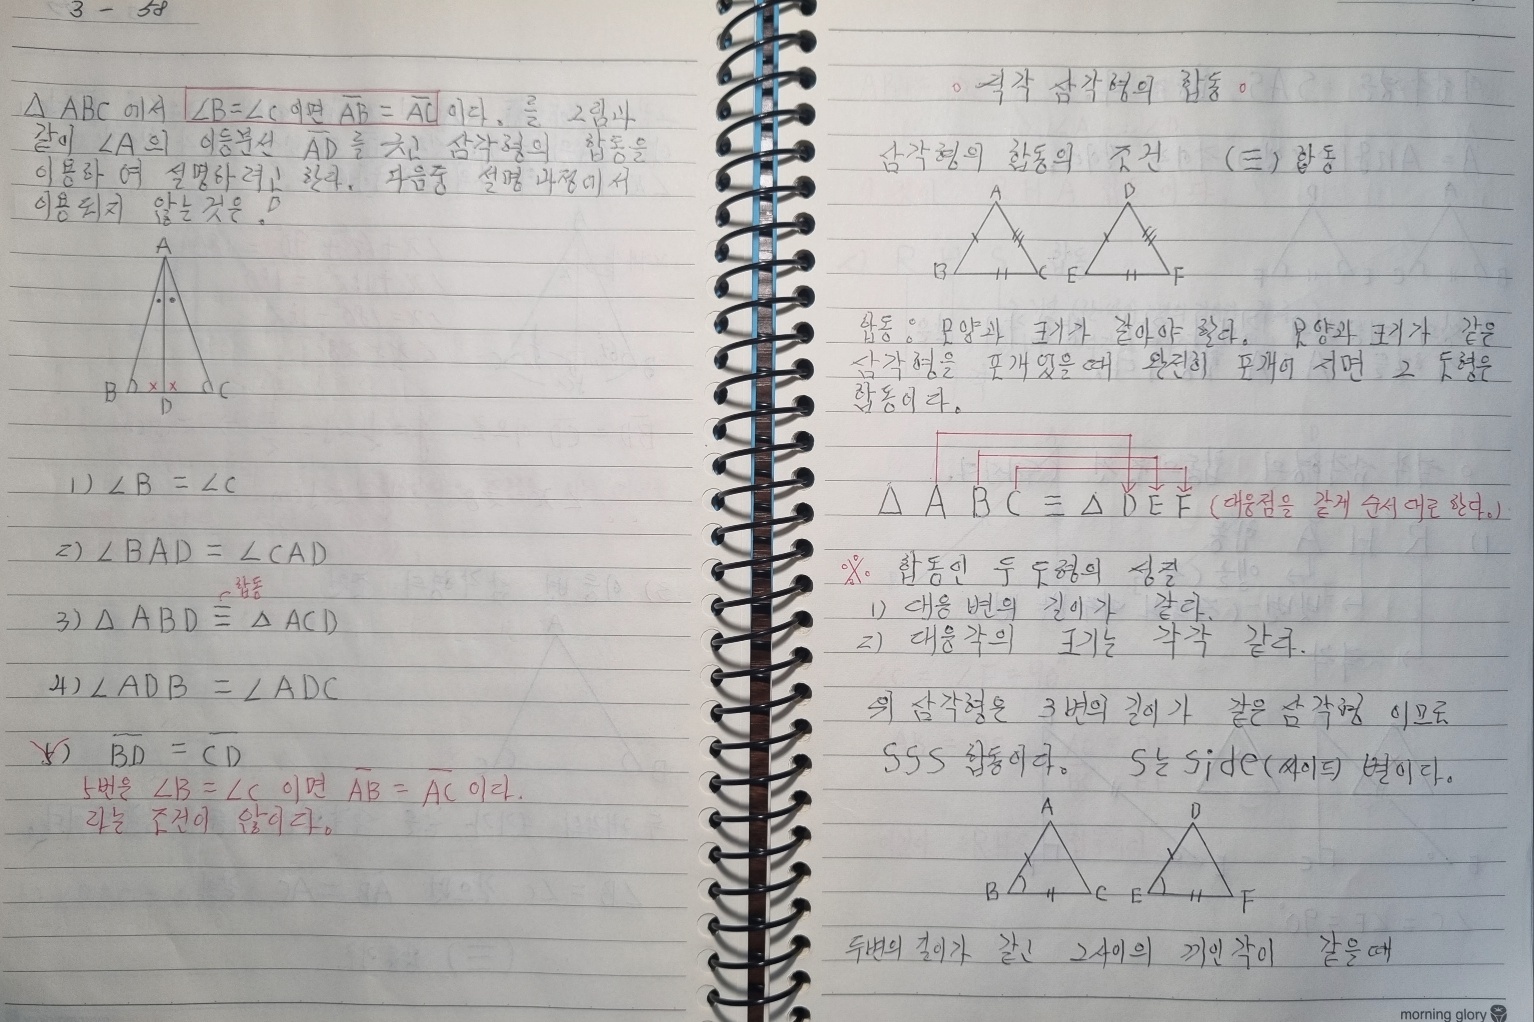 3 - 58
△ ABC 에서 ∠B=∠C 이면 AB = AC 이다. 를 그림과
같이 ∠A 의 이등분선 AD 를 긋고 삼각형의 합동을
이용하 여 설명하려고 한다. 다음중 설명 과정에서
이용되지 않는 것은?
A
B
C
D
1) ∠B = ∠C
2) ∠BAD = ∠CAD
합동
3) △ ABD ≡ △ ACD
4) ∠ADB = ∠ADC
5) BD = CD
5번은 ∠B = ∠C 이면 AB = AC 이다.
라는 조건이 않이다.
직각 삼각형의 합동
삼각형의 합동의 조건 (≡) 합동
A D
B C E F
합동 : 모양과 크기가 같아야 한다. 모양과 크기가 같은
삼각형을 포개었을때 완전히 포개어 지면 그 도형은
합동이다.
△ A B C ≡ △ D E F (대응점을 같게 순서 대로 한다.)
※ 합동인 두 도형의 성질
1) 대응 변의 길이가 같다.
2) 대응각의 크기는 각각 같다.
위 삼각형은 3변의 길이가 같은 삼각형 이므로
SSS 합동이다. S는 Side (싸이드) 변이다.
A D
B C E F
두변의 길이가 같고 그사이의 끼인각이 같을때
morning glory